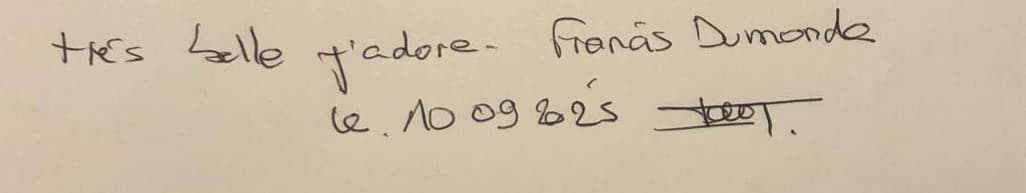 très belle j'adore. Franās Dumonde
le. 10 09 2025